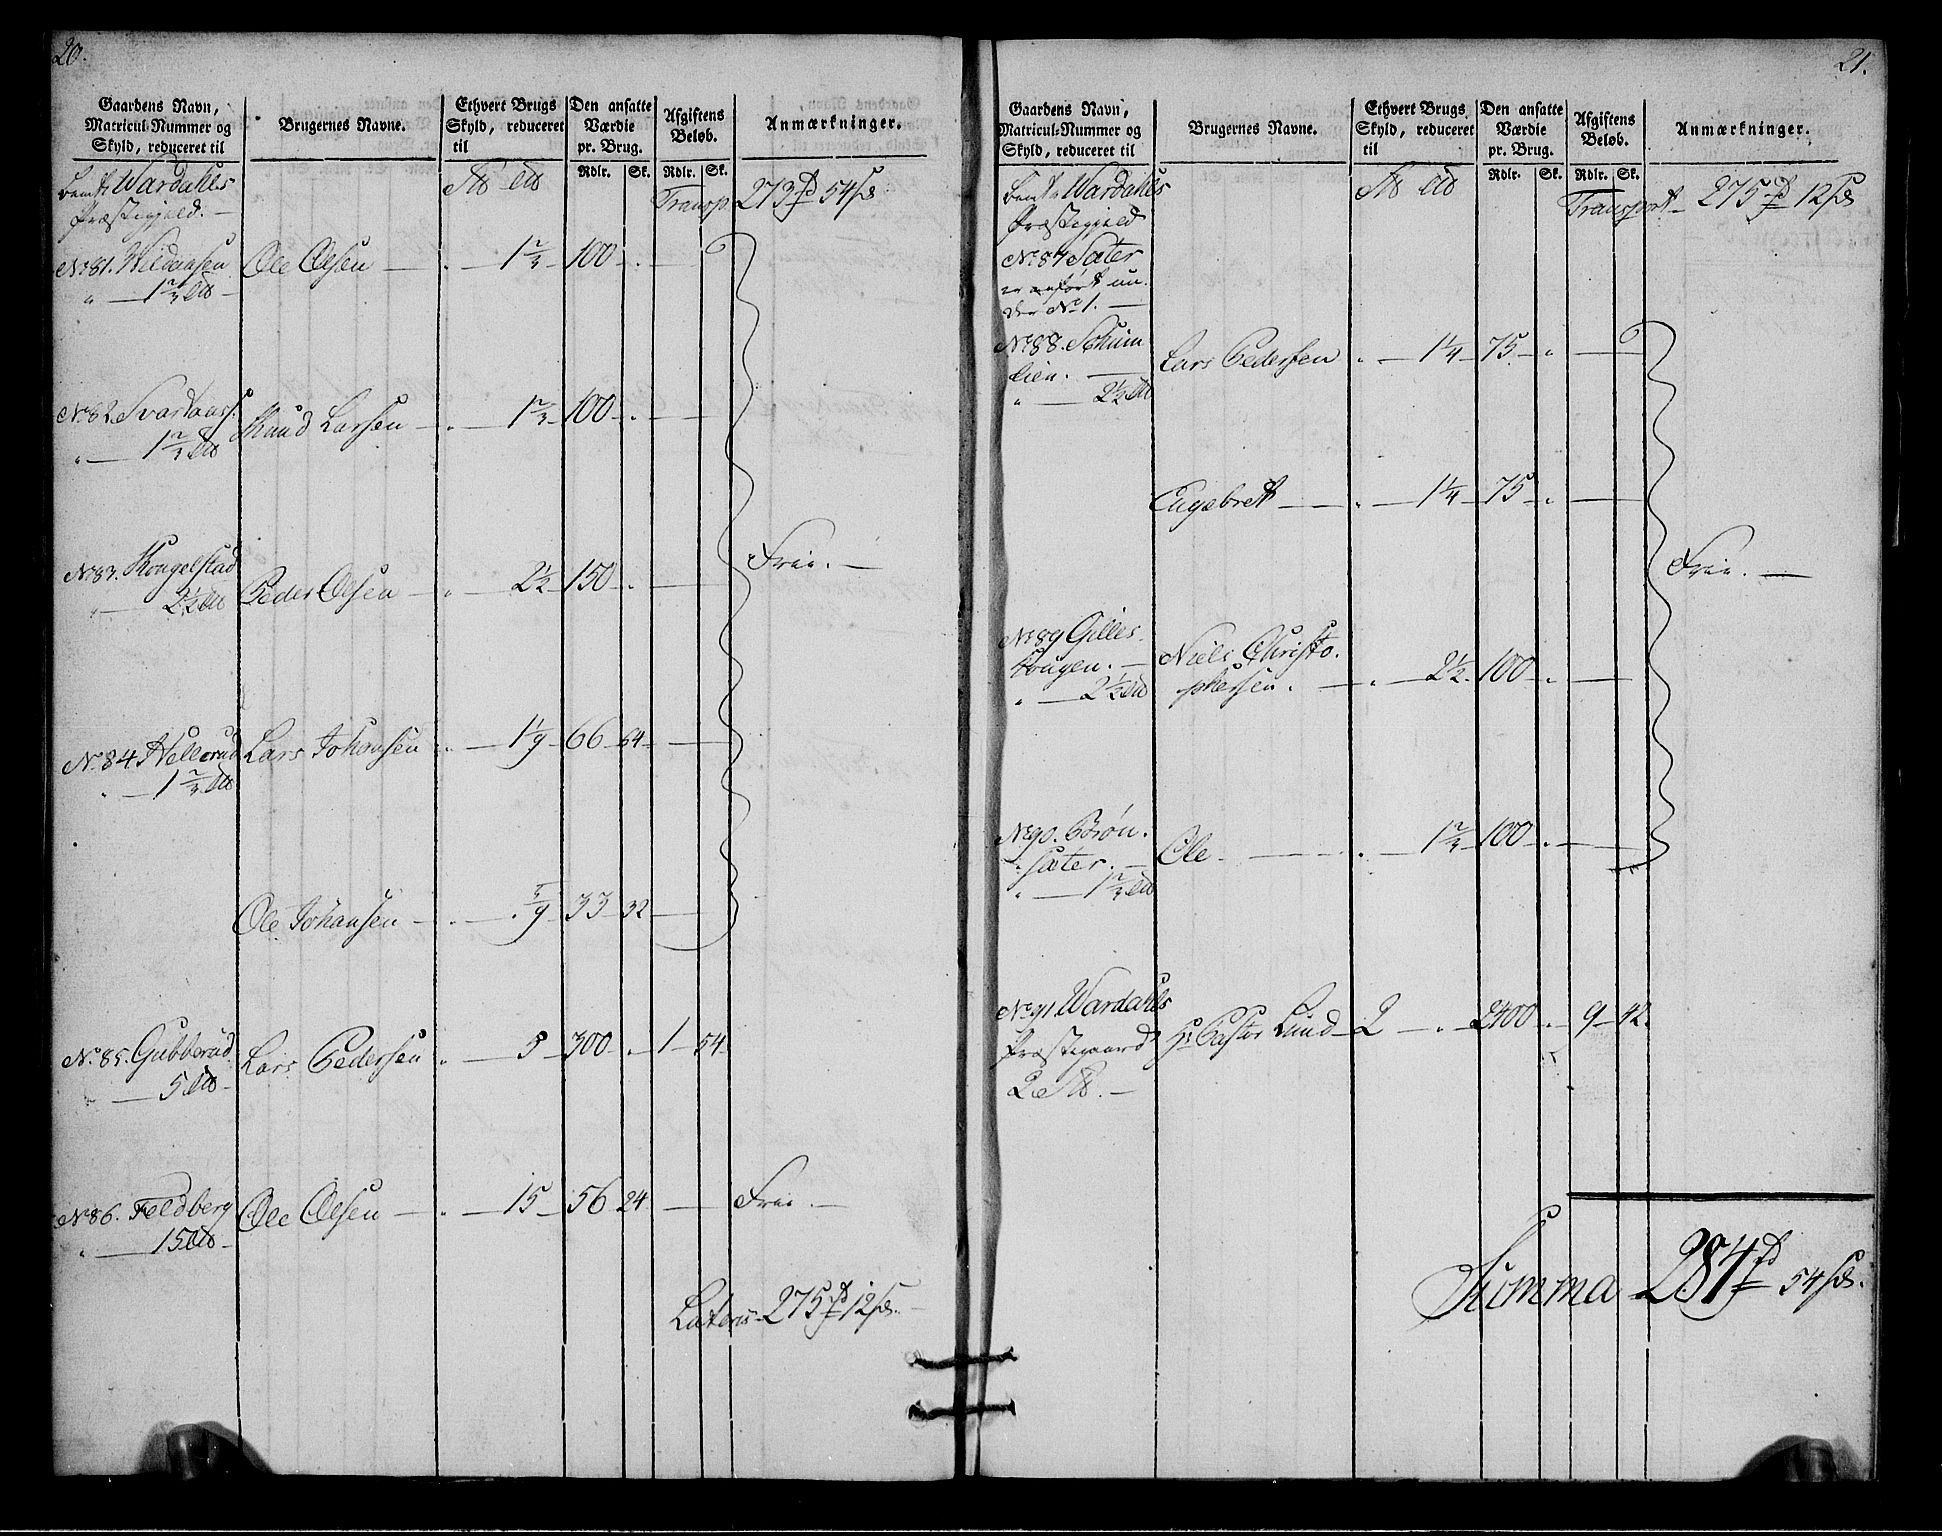 20.
Gaardens Navn,
Matricul-Nummer og
Skyld, reduceret til
Brugernes Navne.
Ethvert Brugs
Skyld, reduceret
til
Den ansatte
Værdie
pr. Brug.
Rdlr. Sk.
Afgiftens
Beløb.
Rdlr. Sk.
Anmærkninger.
Wardahls
Præstegjeld.
Transp. 273 54
No 81.
1 2/3
Ole Olsen 1 2/3 100
No 82 Svartaas
1 2/3
Knud Larsen 1 2/3 100
No 83. Kongelstad
2 1/2
Peder Olsen 2 1/2 150
Frie.
No 84 Hellerud
1 2/3
Lars Johansen 1 1/9 66 64
Ole Johansen 5/9 33 32
No 85. Gubberud
5
Lars Pedersen 5 300 1 54
No 86. Feldberg
15
Ole Olsen 15 56 24
Frie.
Lateris 275 12
21.
Gaardens Navn,
Matricul-Nummer og
Skyld, reduceret til
Brugernes Navne.
Ethvert Brugs
Skyld, reduceret
til
Den ansatte
Værdie
pr. Brug.
Rdlr. Sk.
Afgiftens
Beløb.
Rdlr. Sk.
Anmærkninger.
Wardahls
Præstegjeld
Transport 275 12
No 87 Sæter
er anført un-
der No 1.
No 88. Schum
lien.
2 1/2
Lars Pedersen 1 1/4 75
Engebret 1 1/4 75
Frie.
No 89 Gilles
hougen.
2 1/2
Niels Christo-
phersen. 2 1/2 100
No 90. Brøn-
sæter.
1 2/3
Ole 1 2/3 100
No 91 Wardahls
Præstegaard
2
Hr Pastor Lund 2 2400 9 42
Summa 284 54